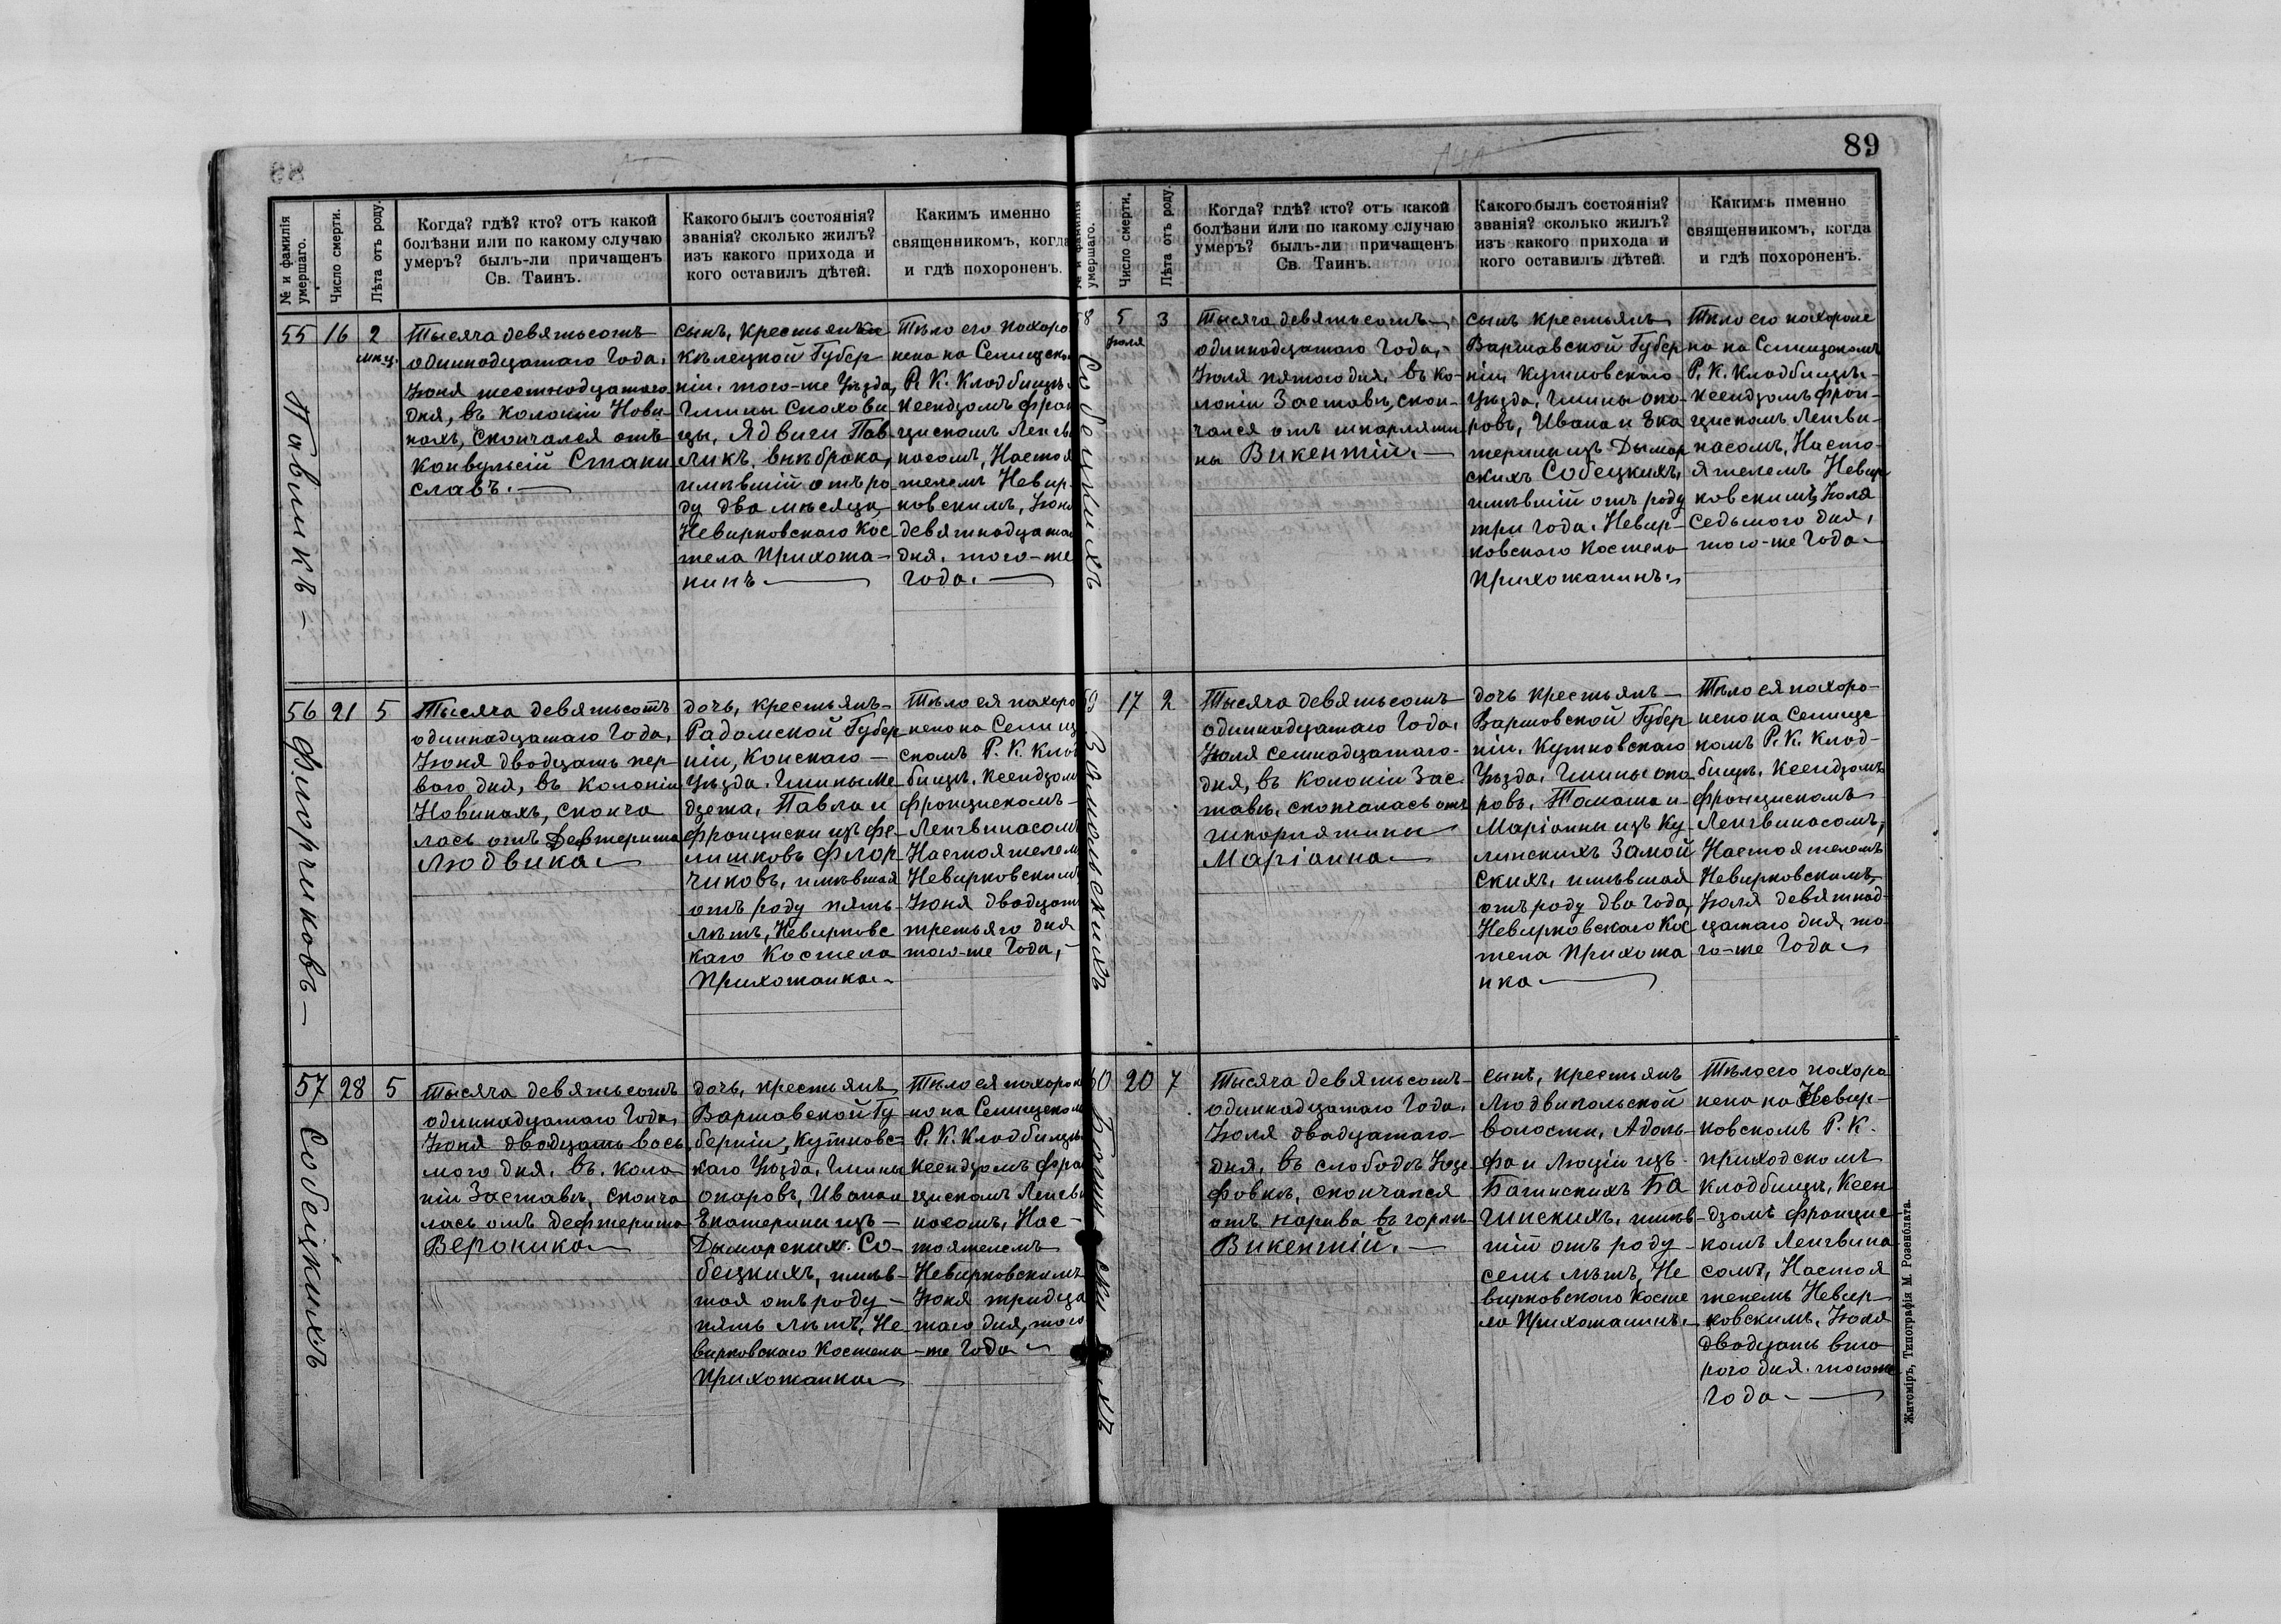 89
№ и фамилія умершаго.
Число смерти.
Лѣта отъ роду.
Когда? гдѣ? кто? отъ какой
болѣзни или по какому случаю
умеръ? былъ-ли причащенъ
Св. Таинъ.
Какого былъ состоянія?
званія? сколько жилъ?
изъ какого прихода и
кого оставилъ дѣтей.
Какимъ именно
священникомъ, когда
и гдѣ похороненъ.
55 16 2 мѣц.
Павликъ
Тысяча девятьсотъ
одиннадцатаго Года,
Іюня шестнадцатаго
дня, въ колоніи Нови-
нахъ, скончался отъ
конвульсій Стани
славъ.
сынъ, крестьянки
Кѣлецкой Губер
ніи, того-же Уѣзда,
Гмины Снохови-
цы, Ядвиги Пав-
ликъ, внѣ брака,
имѣвшій отъ ро-
ду два мѣсяца,
Невирковскаго Кос-
тела Прихожа-
нинъ
Тѣло его похоро
нено на Селищско
Р. К. Кладбищѣ
Ксендзомъ Фран
цискомъ Ленгви
насомъ, Настоя
телемъ Невир-
ковскимъ, Іюня
девятнадцатаго
дня, того-же
года.
56 21 5
Флорчиковъ
Тысяча девятьсотъ
одиннадцатаго Года,
Іюня двадцать пер-
ваго дня, въ Колоніи
Новинахъ, сконча
лась отъ Дефтерита
Людвика
дочь, крестьянъ
Радомской Губер
ніи, Конскаго
Уѣзда, Гмины Ме
дзежа, Павла и
Франциски изъ Фе-
лишковъ Флор
чиковъ, имѣвшая
отъ роду пять
лѣтъ, Невирковс
каго Костела
Прихожанка
Тѣло ея похоро
нено на Селищ
скомъ Р. К. Клад
бищѣ, Ксендзомъ
Францискомъ
Ленгвинасомъ
Настоятелемъ
Невирковскимъ
Іюня двадцать
третьяго дня
того-же Года,
57 28 5
Собецкихъ
Тысяча девятьсотъ
одиннадцатаго Года,
Іюня двадцать вось
мого дня, въ коло
ніи Заставѣ, сконча
лась отъ дефтерита
Вероника
дочь, крестьянъ
Варшавской Гу-
берніи, Кутновс-
каго Уѣзда, Гмины
опоровъ, Ивана и
Екатерины изъ
Дыморскихъ Со-
бецкихъ, имѣв-
шая отъ роду
пять лѣтъ, Не-
вирковскаго Костела
Прихожанка
Тѣло ея похороне
но на Селищском
Р. К. Кладбищѣ
Ксендзомъ Фран
цискомъ Ленгви
насомъ, Нас-
тоятелемъ
Невирковскимъ
Іюня тридца
таго дня, того
-же Года
58 5 Іюля 3
Собецкихъ
Тысяча девятьсотъ
одиннадцатаго Года,
Іюля пятого дня, въ ко-
лоніи Заставѣ, скон-
чался отъ шкарляти
ны Викентій.
сынъ крестьянъ
Варшавской Губер
ніи, Кутновскаго
Уѣзда, Гмины опо-
ровъ, Ивана и Ека
терины изъ Дымор
скихъ Собецкихъ,
имѣвшій отъ роду
три года, Невир-
ковскаго Костела
Прихожанинъ.
Тѣло его похороне
но на Селищскомъ
Р. К. Кладбищѣ
Ксендзомъ Фран-
цискомъ Ленгви-
насомъ, Насто-
ятелемъ Невир
ковскимъ, Іюля
седьмого дня,
того-же Года
59 17 2
Замойскихъ
Тысяча девятьсотъ
одиннадцатаго Года,
Іюля семнадцатаго
дня, въ Колоніи Зас
тавѣ, скончалась отъ
шкарлятины
Маріанна
дочь крестьянъ
Варшавской Губер
ніи, Кутновскаго
Уѣзда, Гмины опо
ровъ, Томаша и
Маріанны изъ Ку
линскихъ Замой
скихъ, имѣвшая
отъ роду два года,
Невирковскаго Кос
тела Прихожа
нка
Тѣло ея похоро-
нено на Селищс
комъ Р. К. Клад-
бищѣ, Ксендзомъ
Францискомъ
Ленгвинасомъ,
Настоятелемъ
Невирковскимъ,
Іюля девятнад-
цатаго дня, то-
го-же Года
60 20 7
Тысяча девятьсотъ
одиннадцатаго Года,
Іюля двадцатаго
дня, въ слободѣ Юзе
фовкѣ, скончался
отъ нарива въ горлѣ
Викентій.
сынъ, крестьянъ
Людвипольской
волости, Адоль-
фа и Люціи изъ
Багинскихъ Ба
гинскихъ, имѣв-
шій отъ роду
семь лѣтъ, Не
вирковскаго Косте
ла Прихожанинъ.
Тѣло его похоро
нено на Невир-
ковскомъ Р. К.
приходскомъ
Кладбищѣ, Ксен
дзомъ Францис
комъ Ленгвина
сомъ, Настоя
телемъ Невир-
ковскимъ, Іюля
двадцать вто
рого дня, того же
Года
Житоміръ, Типографія М. Розенблата.